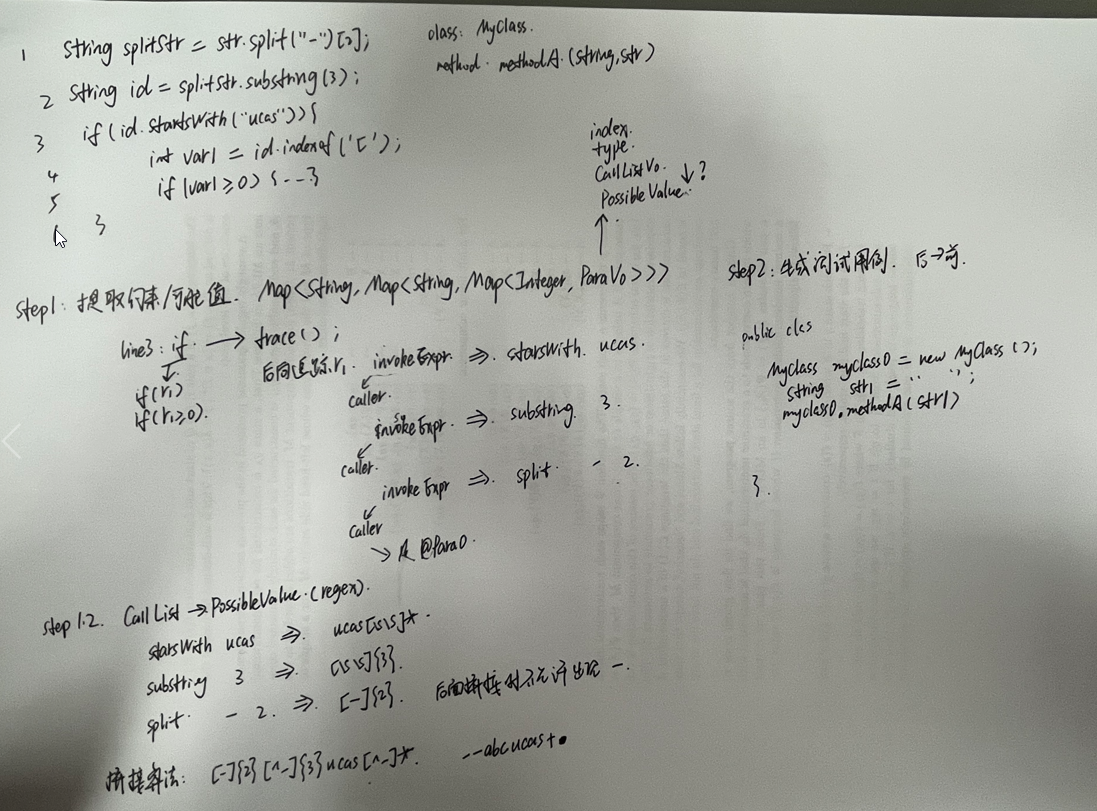 1 String splitStr = str.split("-")[2];
2 String id = splitStr.substring(3);
3 if(id.startsWith("ucas")){
4 int var1 = id.indexof('[');
5 if(var1≥0){---}
6 }
class: MyClass.
method. methodA.(String,str)
index.
type.
CallListVo. ↓?
PossibleValue.
↑
step1: 提取约束/可能值. Map<String, Map<String, Map<Integer, ParaVo>>>
line3: if. → trace();
if(r1)
if(r1≥0).
后向追踪r1. invokeExpr. ⇒ starsWith. ucas.
caller.
invokeExpr. ⇒ substring 3.
caller.
invokeExpr ⇒ split. - 2.
caller
↘ 是@Para0.
step2: 生成测试用例. 后→前.
public clas
MyClass myclass0 = new MyClass();
String str1 = " ";
myclass0.methodA(str1)
}.
step1.2. CallList → PossibleValue.(regex).
starsWith ucas ⇒ ucas[\s\S]*.
substring 3 ⇒ [\s\S]{3}.
split. - 2. ⇒ [-]{2}. 后面拼接时不允许出现 -.
拼接算法: [-]{2}[^-]{3}ucas[^-]*. --abcucas+•